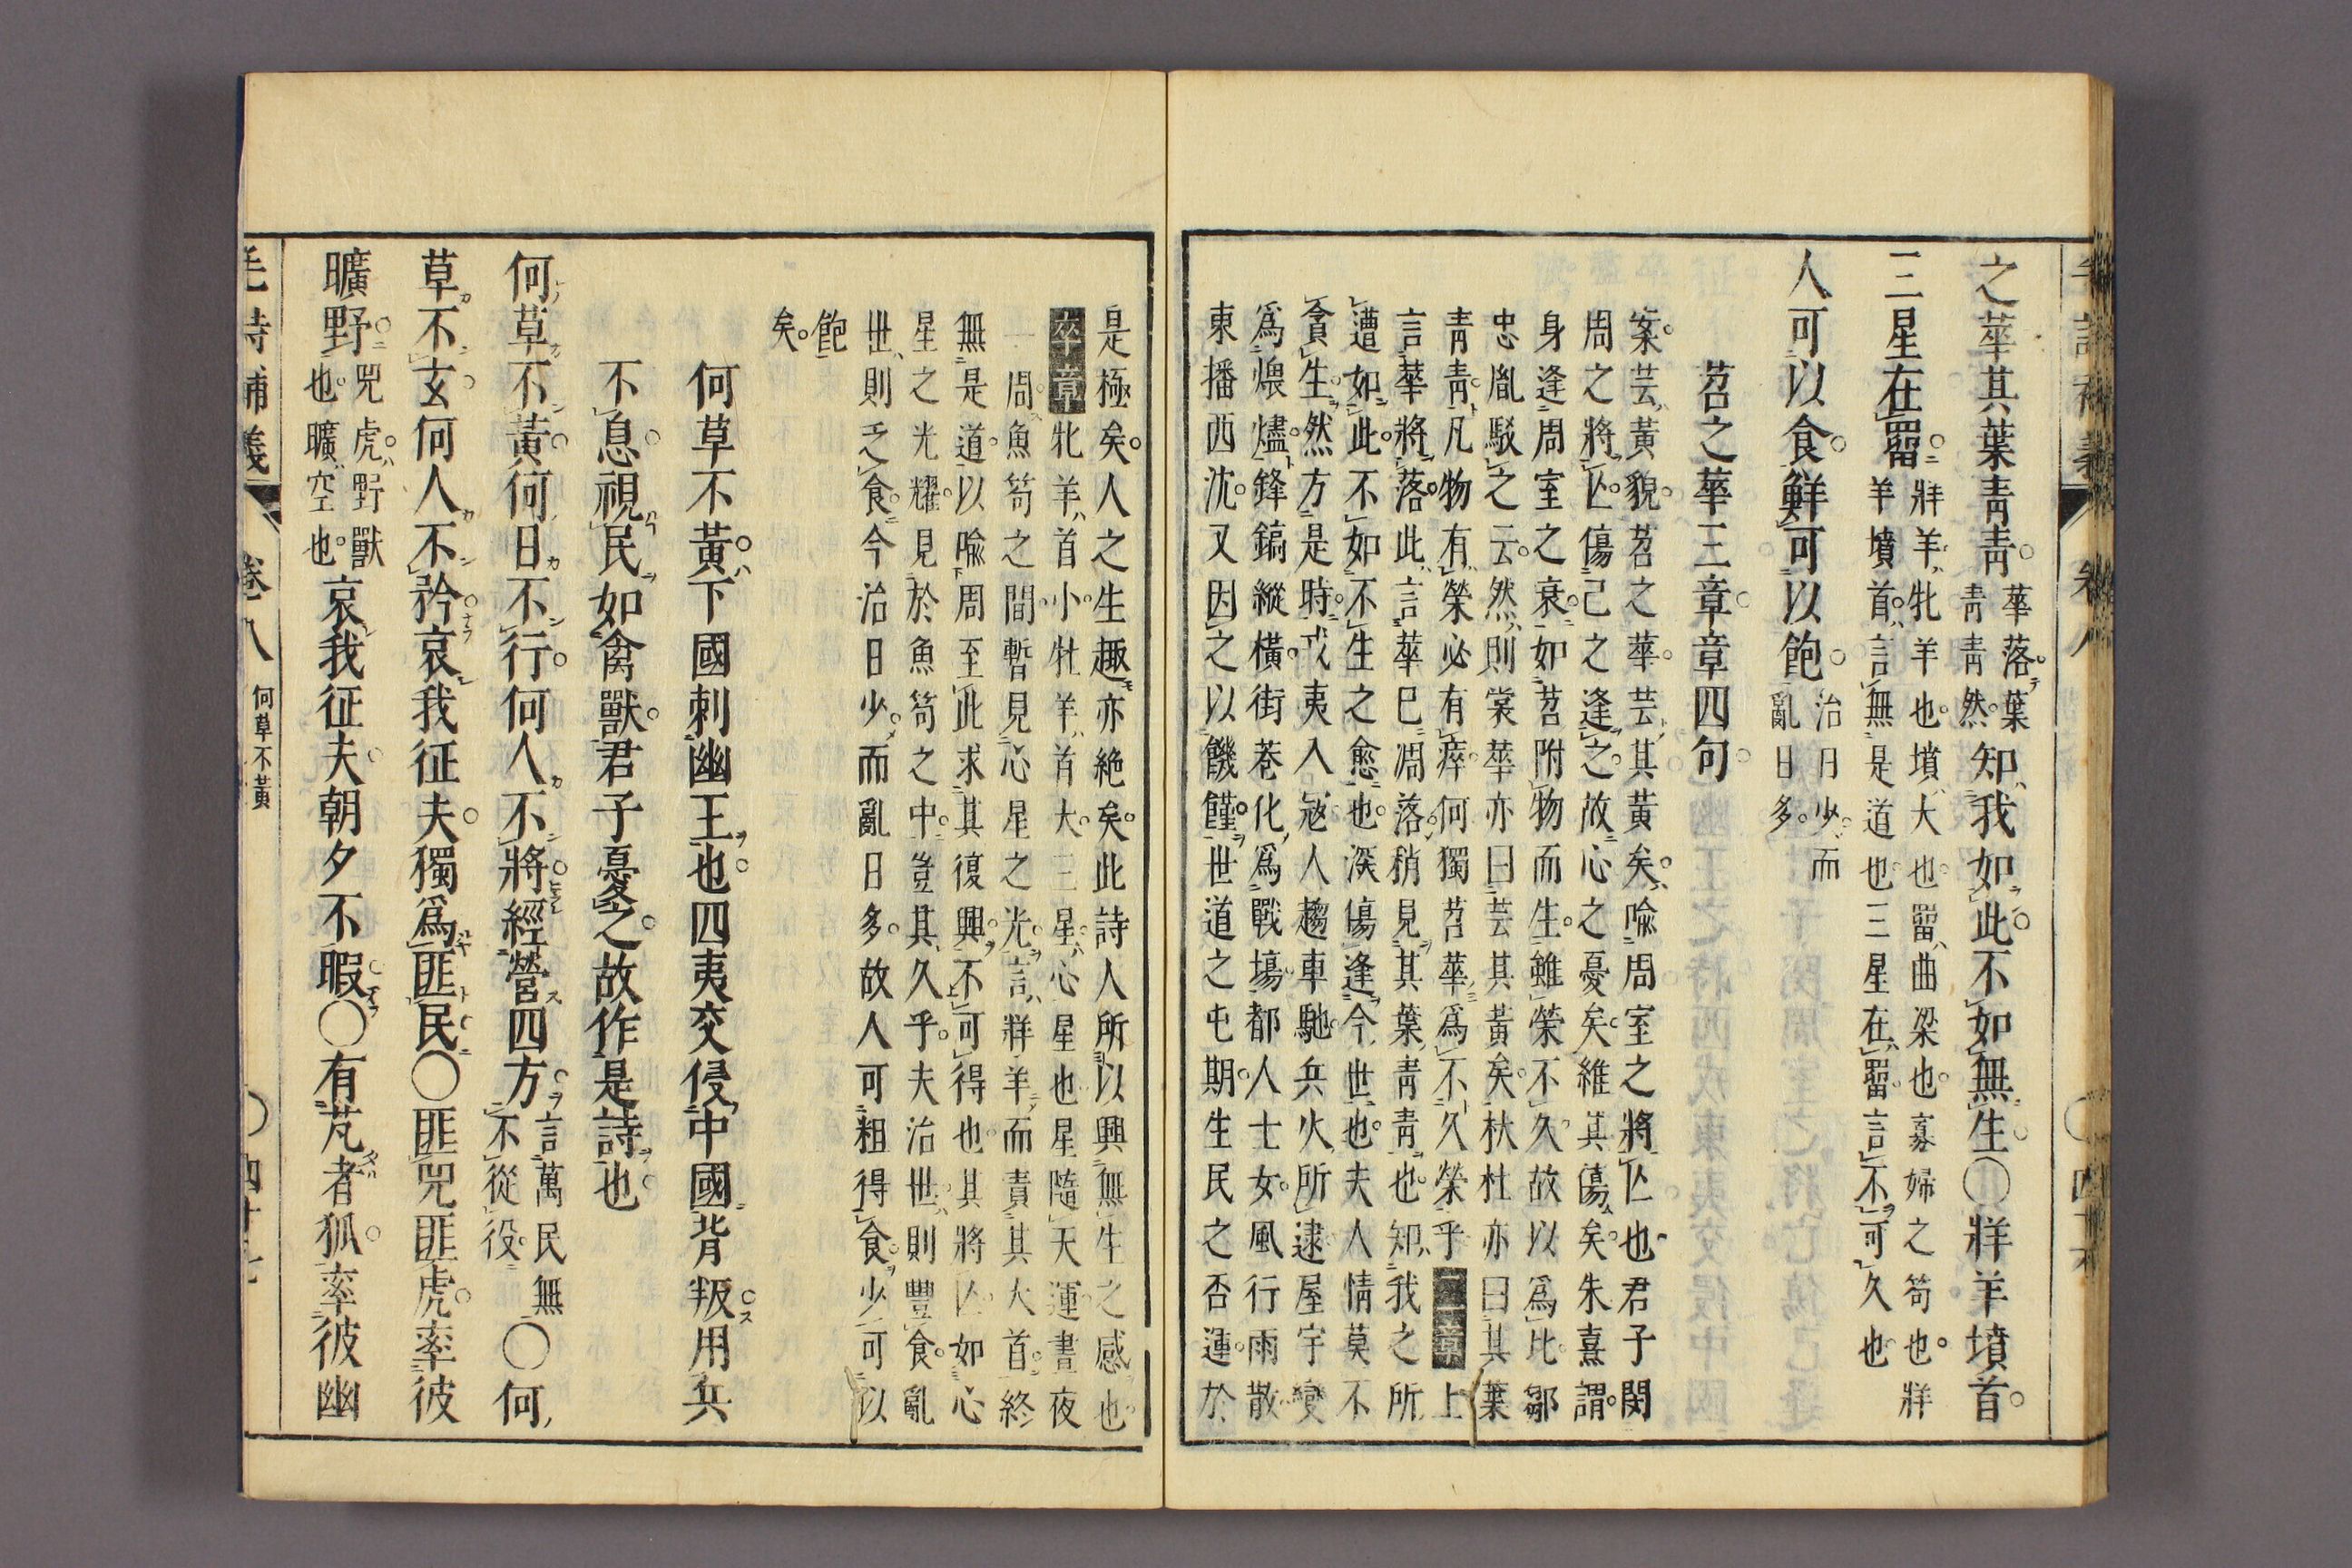 之華其葉青青華落葉青青然知我如此不如無生○牂羊墳首
三星在罶牂羊牝羊也墳大也罶曲梁也寡婦之笱也牂羊墳首言無是道也三星在罶言不可久也
人可以食鮮可以飽治日少而亂日多
苕之華三章章四句
案芸黃貌苕之華芸其黃矣喩周室之將亾也君子閔
周之將亾傷己之逢之故心之憂矣維其傷矣朱熹謂
身逢周室之衰如苕附物而生雖榮不久故以爲比鄒
忠胤駁之云然則裳華亦曰芸其黃矣杕杜亦曰其葉
青青凡物有榮必有瘁何獨苕華爲不久榮乎二章上
言華將落此言華已凋落稍見其葉靑青也知我之所
遭如此不如不生之愈也深傷逢今世也夫人情莫不
貪生然方是時戎夷入寇人趨車馳兵火所逮屋宇變
爲煨燼鋒鏑縱橫街巷化爲戰塲都人士女風行雨散
東播西沈又因之以饑饉世道之屯期生民之否運於
是極矣人之生趣亦絶矣此詩人所以興無生之感也
卒章牝羊首小牡羊首大三星心星也星隨天運晝夜
一周魚笱之間暫見心星之光言牂羊而責其大首終
無是道以喩周至此求其復興不可得也其將亾如心
星之光耀見於魚笱之中豈其久乎夫治世則豐食亂
世則乏食今治日少而亂日多故人可粗得食少可以
飽
矣
何草不黃下國刺幽王也四夷交侵中國背叛用兵
不息視民如禽獸君子憂之故作是詩也
何草不黃何日不行何人不將經營四方言萬民無不從役○何
草不玄何人不矜哀我征夫獨爲匪民○匪兕匪虎率彼
曠野兕虎野獸也曠空也哀我征夫朝夕不暇○有芃者狐率彼幽
毛詩補義 卷八 何草不黃